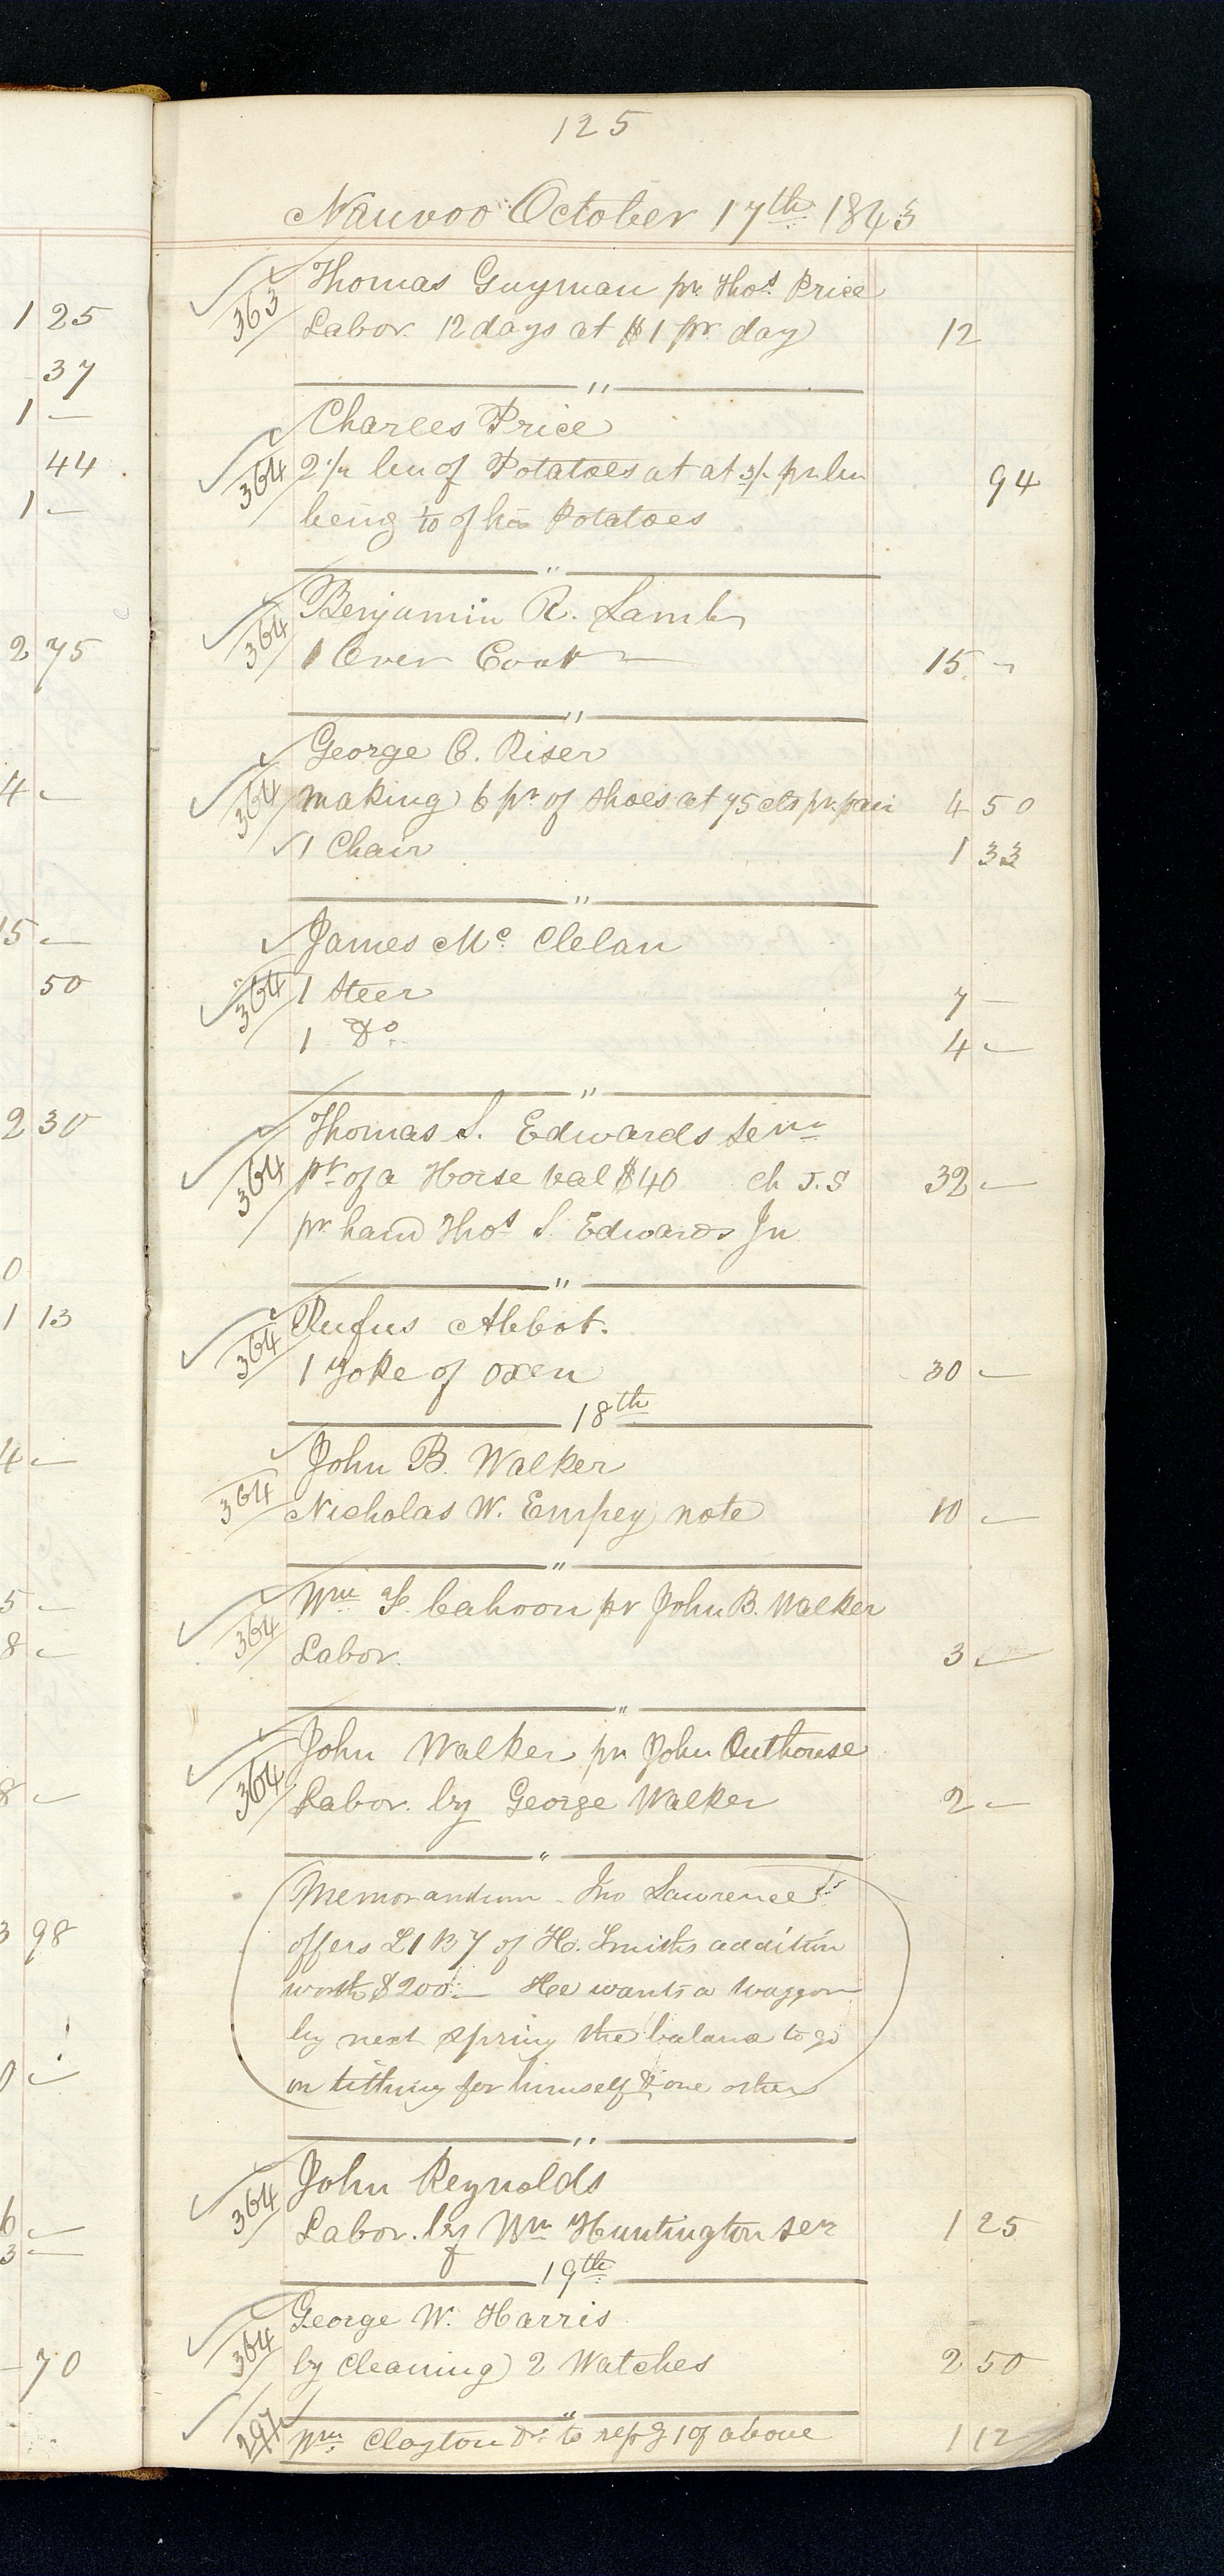 125
Nauvoo October 17th 1843
363 Thomas Guyman pr. Thos. Price
Labor. 12 days at $1 pr. day 12
"
Charles Price
364 2 1/2 bu of Potatoes at at 3/- pr bu 94
being to of his Potatoes
"
Benjamin R. Lamb
364 1 Over Coat 15 -
"
George C. Riser
364 making 6 pr of shoes at 75 cts pr. pair 4 50
1 Chair 1 33
"
James Mc. Clelan
364 1 Steer 7 -
1 Do. 4 -
"
Thomas S. Edwards Senr
364 pt. of a Horse val $40 ch J.S 32 -
pr hand Thos S. Edwards Jn
"
Rufus Abbot.
364 1 Yoke of oxen 30 -
18th
John B. Walker
364 Nicholas W. Empey note 10 -
"
Wm F. Cahoon pr John B. Walker
364 Labor. 3 -
"
John Walker pr John Outhouse
364 Labor. by George Walker 2 -
"
Memorandum - Jno Lawrence
offers L1 B7 of H. Smiths addition
worth $200.- He wants a waggon
by next spring the balance to go
on tithing for himself & one other
"
John Reynolds
364 Labor. by Wm Huntington ser 1 25
19th
George W. Harris
364 by Cleaning 2 Watches 2 50
"
297 Wm. Clayton Dr. to repg 1 of above 1 12
1 25
37
1 -
44
1 -
2 75
4 -
15 -
50
2 30
0
1 13
4 -
5 -
8 -
8 -
3 98
0 -
6 -
3 -
- 70